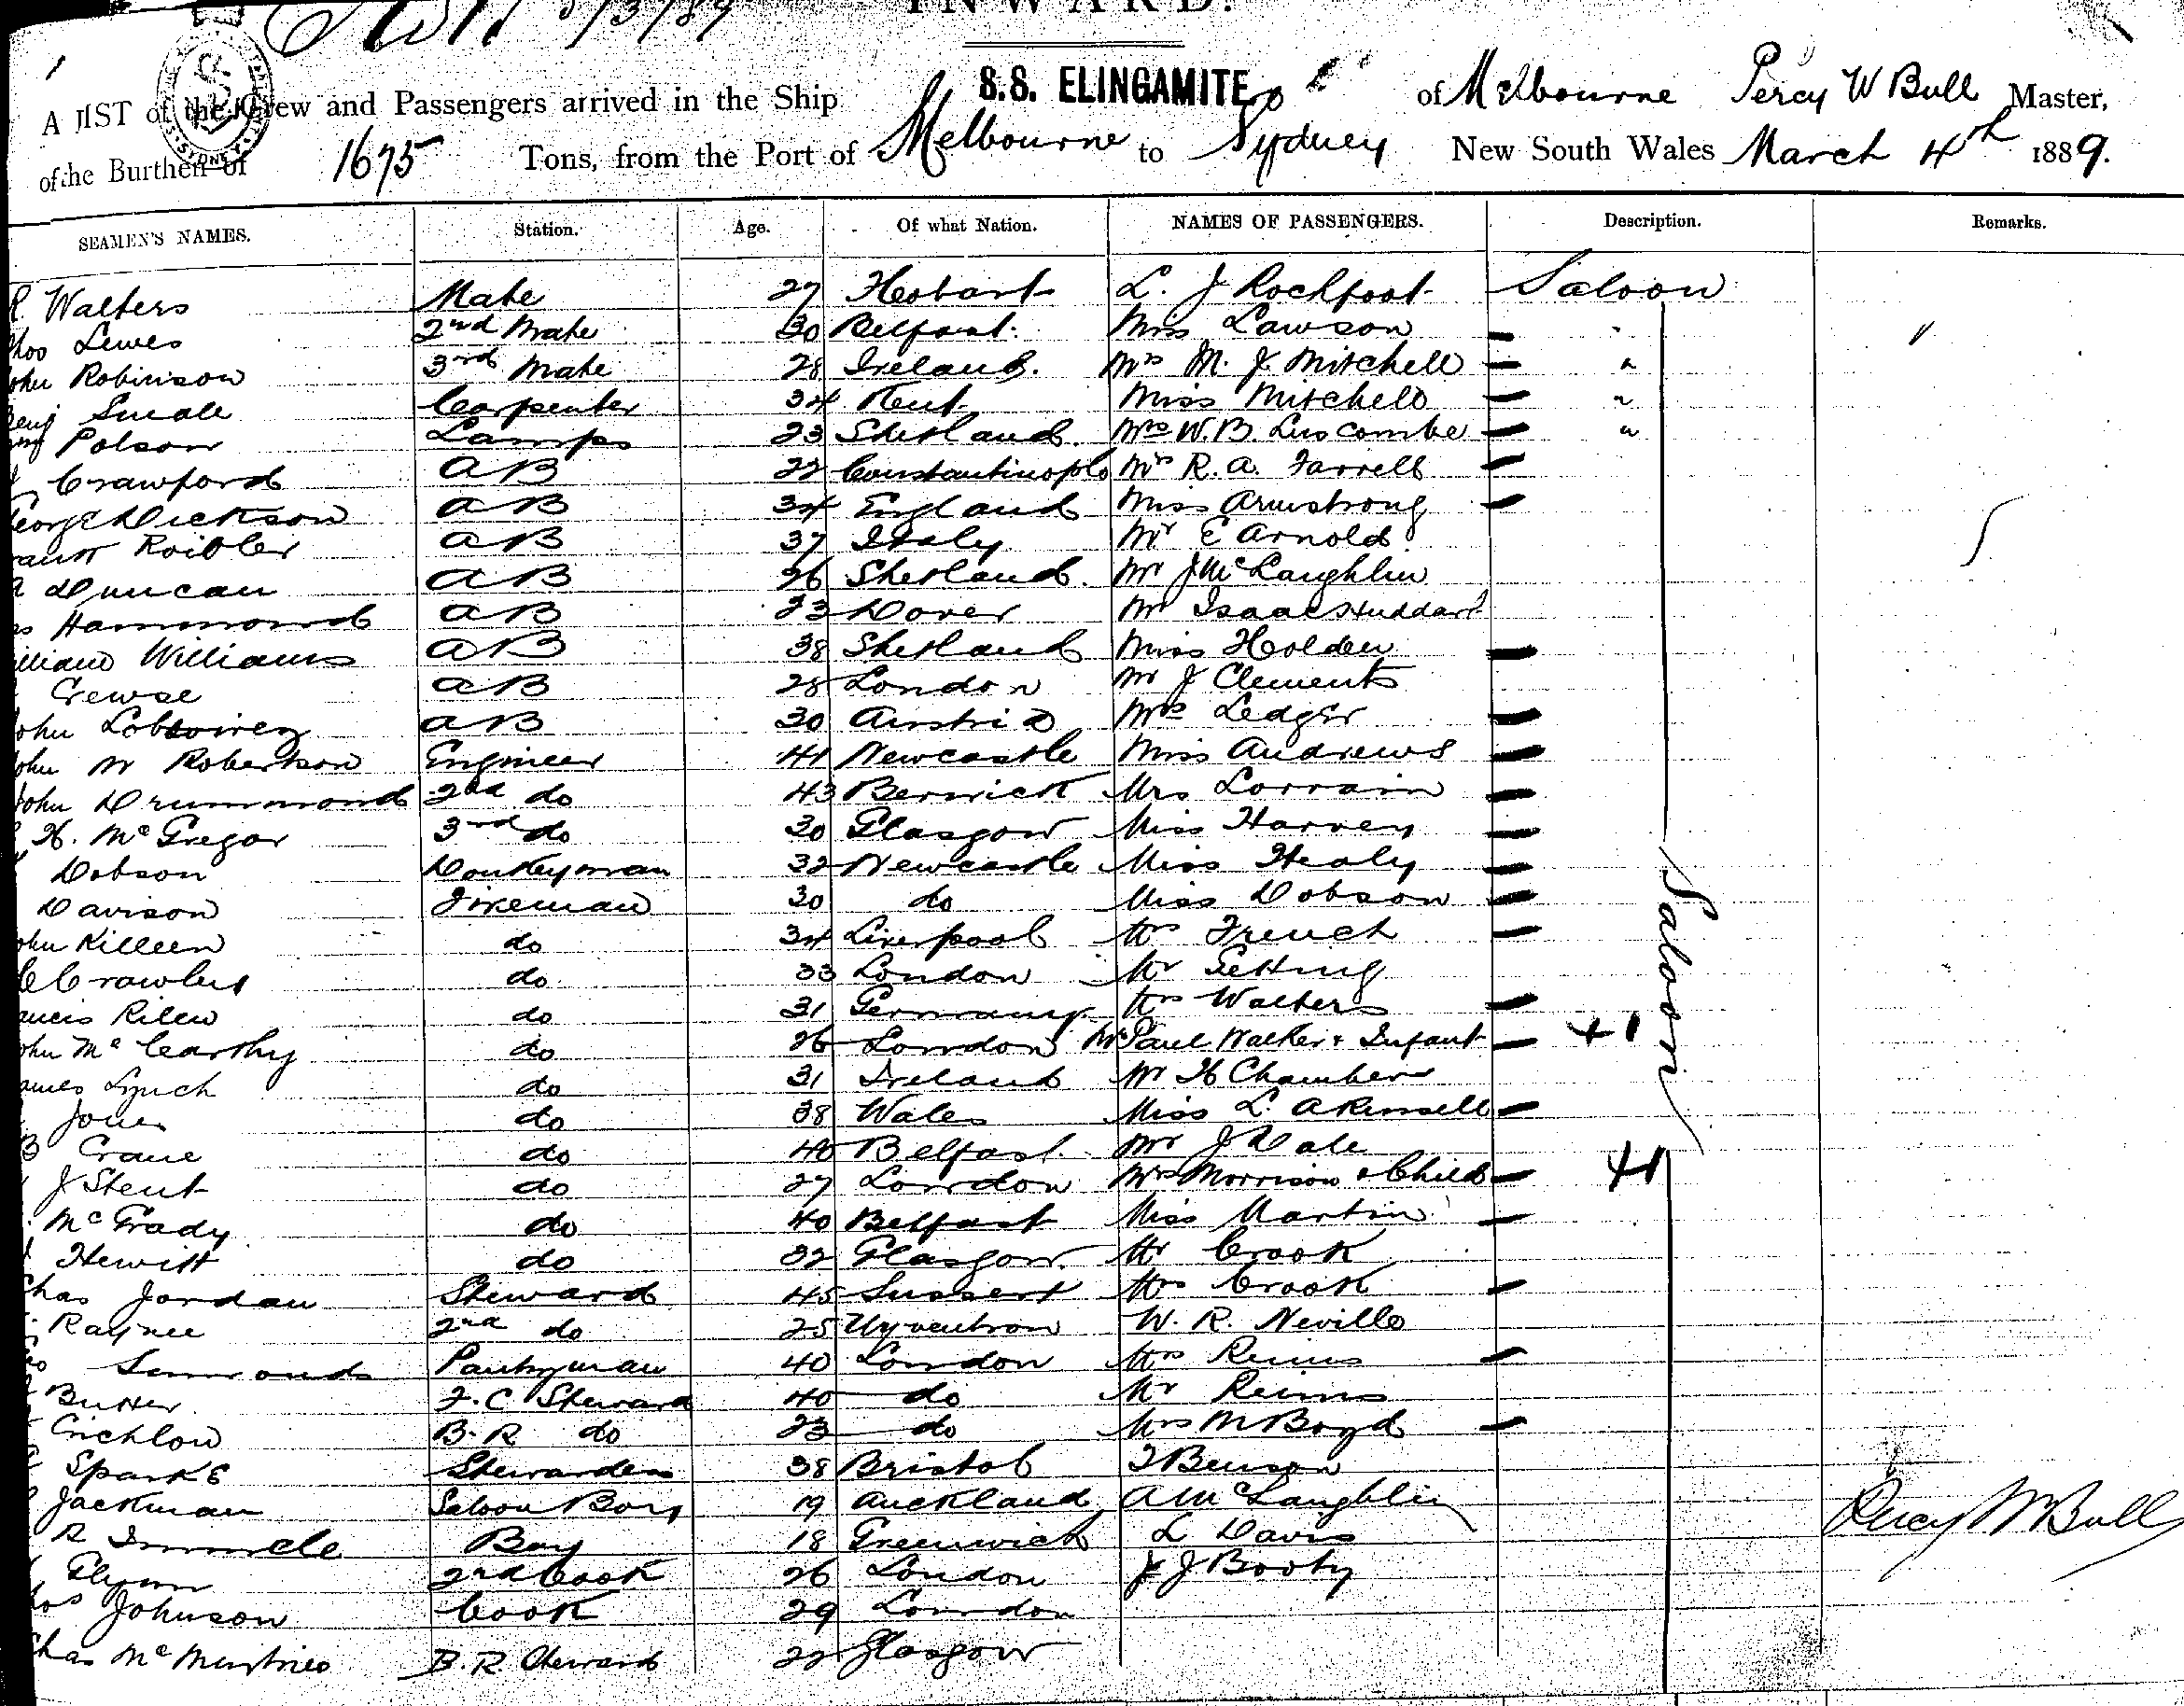 INWARD.
S.S. ELINGAMITE of Melbourne Percy W Bull Master,
A LIST of the Crew and Passengers arrived in the Ship
of the Burthen of 1675 Tons, from the Port of Melbourne to Sydney New South Wales March 4th 1889.
SEAMEN'S NAMES. Station. Age. Of what Nation. NAMES OF PASSENGERS. Description. Remarks.
R. Walters Mate 27 Hobart L. J Rochfort Saloon
Lewes 2nd Mate 30 Belfast. Miss Lawson
John Robinson 3rd Mate 28 Ireland. Mrs M. J. Mitchell
Smale Carpenter 34 Kent Miss Mitchell
Polson Lamps 23 Shetland. Mrs W. B. Luscombe
Crawford AB 22 Constantinople Mrs R. A. Farrell
George Dickson AB 34 England Miss Armstrong
AB 37 Italy Mr E Arnold
Duncan AB 26 Shetland. Mr J McLaughlin
Hammond AB 23 Dover Mr Isaac Huddart
William Williams AB 38 Shetland Miss Holden
Crewse AB 28 London Mr J Clements
John AB 30 Austria Mrs Ledger
John M Robertson Engineer 41 Newcastle Miss Andrews
John Drummond 2nd do 43 Berwick Mrs Lorrain
H. McGregor 3rd do 30 Glasgow Miss Harvey
Dobson Donkeyman 32 Newcastle Miss Healy
Davison Fireman 30 do Miss Dobson
John Killeen do 34 Liverpool Mrs French
do 33 London Mr
do 31 Germany Mrs Walters
John McCarthy do 26 London Mrs Paul Walker & Infant +1
James Lynch do 31 Ireland Mr H Chambers
Jones do 38 Wales Miss L. A Kimsell
Crane do 40 Belfast Mr J Dale
J Stent do 27 London Mrs Morrison & Child +1
McGrady do 40 Belfast Miss Martin
Hewitt do 22 Glasgow. Mr Crook
Chas Jordan Steward 45 Sussex Mrs Crook
Raynee 2nd do 25 W. R. Neville
Pantryman 40 London Mrs Reims
Butter F.C Steward 40 do Mr Reims
Crichlow B.R. do 23 do Mrs M Boyd
Sparke Stewardess 38 Bristol T Benson
Jackman Saloon Boy 19 Auckland A McLaughlin
R Boy 18 Greenwich L Davis
Glynn 2nd Cook 26 London J J Booty
Johnson Cook 29 London
Chas B.R Steward 22 Glasgow
Saloon
Percy W Bull